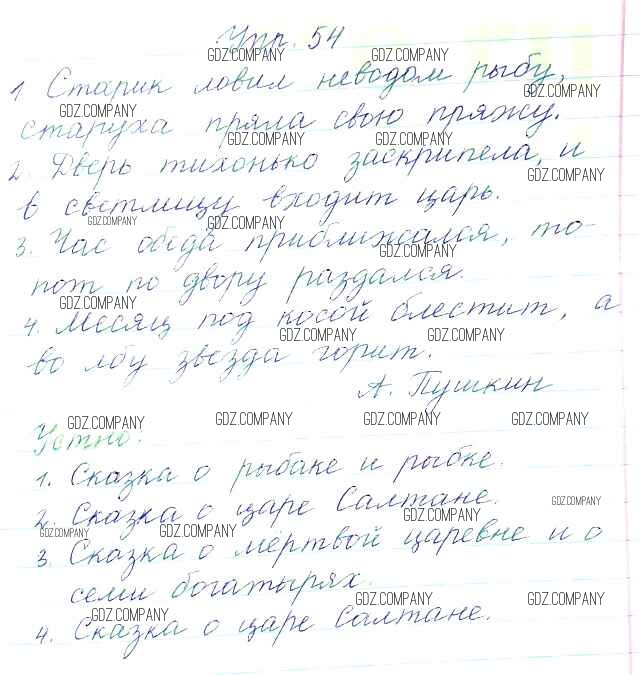 Упр. 54
GDZ.COMPANY GDZ.COMPANY
1 Старик ловил неводом рыбу,
GDZ.COMPANY GDZ.COMPANY
старуха пряла свою пряжу.
GDZ.COMPANY GDZ.COMPANY
2. Дверь тихонько заскрипела, и
GDZ.COMPANY
в светлицу входит царь.
GDZ.COMPANY GDZ.COMPANY
3. Час обеда приближался, то-
GDZ.COMPANY
пот по двору раздался.
GDZ.COMPANY
4. Месяц под косой блестит, а
GDZ.COMPANY GDZ.COMPANY
во лбу звезда горит.
А. Пушкин
GDZ.COMPANY GDZ.COMPANY GDZ.COMPANY GDZ.COMPANY
Устно.
1. Сказка о рыбаке и рыбке.
2. Сказка о царе Салтане.
GDZ.COMPANY GDZ.COMPANY
GDZ.COMPANY GDZ.COMPANY
3. Сказка о мёртвой царевне и о
семи богатырях.
GDZ.COMPANY GDZ.COMPANY GDZ.COMPANY
4. Сказка о царе Салтане.